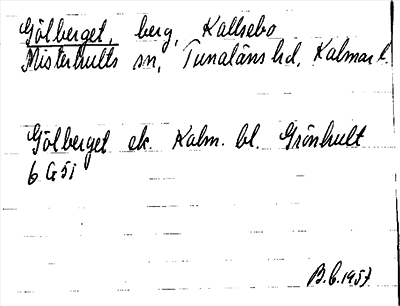 Gölberget, berg, Kallsebo
Misterhults sn, Tunaläns hd, Kalmar l.
Gölberget ek. Kalm. bl. Grönhult
6 G 5i
B.C. 1957